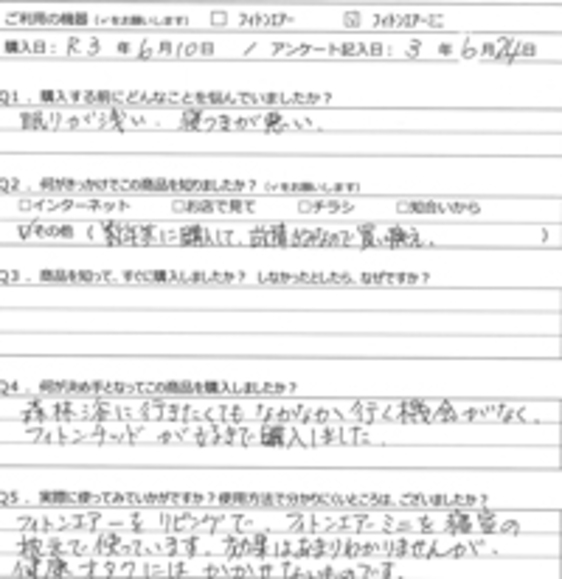 ご利用の機器 (✓をお願いします) □ フィトンエアー ☑ フィトンエアーミニ
購入日: R3 年 6月10日 / アンケート記入日: 3 年 6月24日
Q1．購入する前にどんなことを悩んでいましたか？
眠りが浅い．寝つきが悪い．
Q2．何がきっかけでこの商品を知りましたか？ (✓をお願いします)
□インターネット □お店で見て □チラシ □知合いから
☑その他 ( 数年前に購入して、なので買い換え． )
Q3．商品を知って、すぐに購入しましたか？ しなかったとしたら、なぜですか？
Q4．何が決め手となってこの商品を購入しましたか？
森林浴に行きたくてもなかなか、行く機会がなく、
フィトンチッドができるので購入しました．
Q5．実際に使ってみていかがですか？使用方法で分かりにくいところは、ございましたか？
フィトンエアーをリビングで、フィトンエアーミニを寝室の
枕元で使っています。効果はあまりわかりませんが、
健康オタクにはかかせないものです。